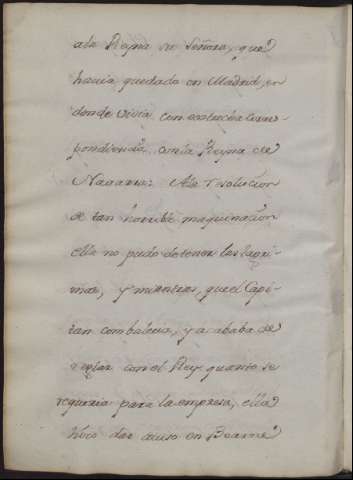 ala Reyna su Señora, que
havia quedado en Madrid, en
donde vivia con estrecha corres-
pondiencia con la Reyna de
Navarra: Ala resolucion
de tan horrible maquinacion
ella no pudo detener las lagri-
mas, y mientras, que el Capi-
tan combalecia, y acababa de
reglar con el Rey quanto se
requeria para la empresa, ella
hizo dar aviso en Bearne